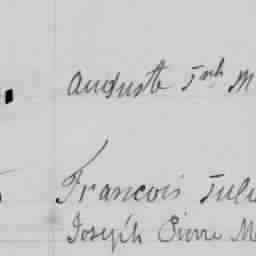 Auguste Jph M
Francois Jule
Joseph Pierre Me